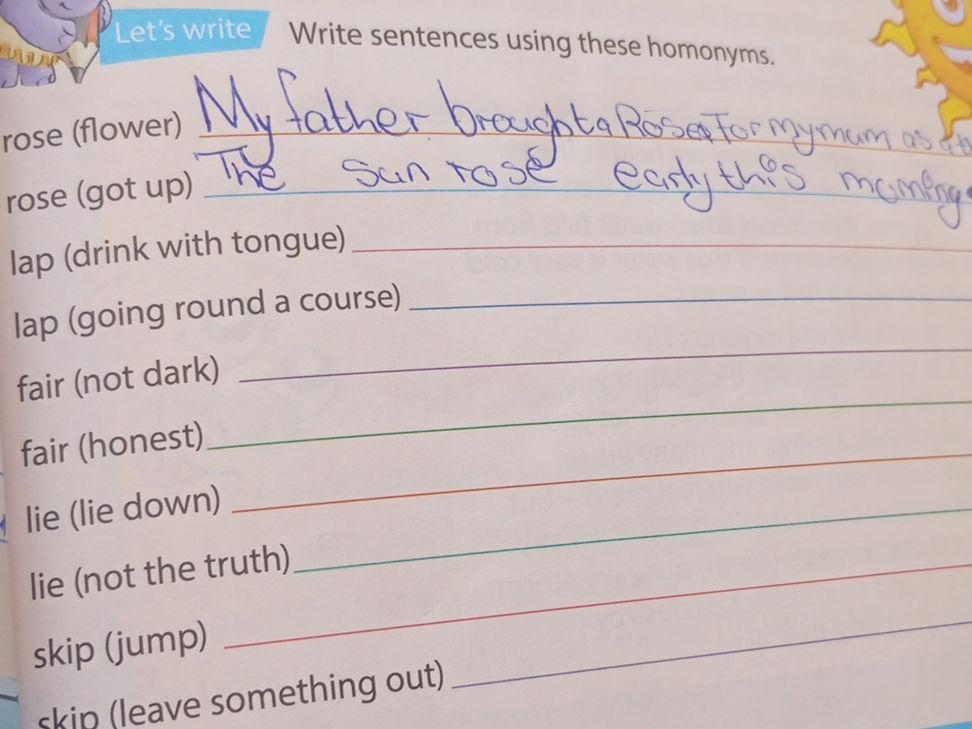 Let's write Write sentences using these homonyms.
rose (flower) My father brought a Rose For my mum as
rose (got up) The sun rose early this morning
lap (drink with tongue)
lap (going round a course)
fair (not dark)
fair (honest)
lie (lie down)
lie (not the truth)
skip (jump)
skip (leave something out)